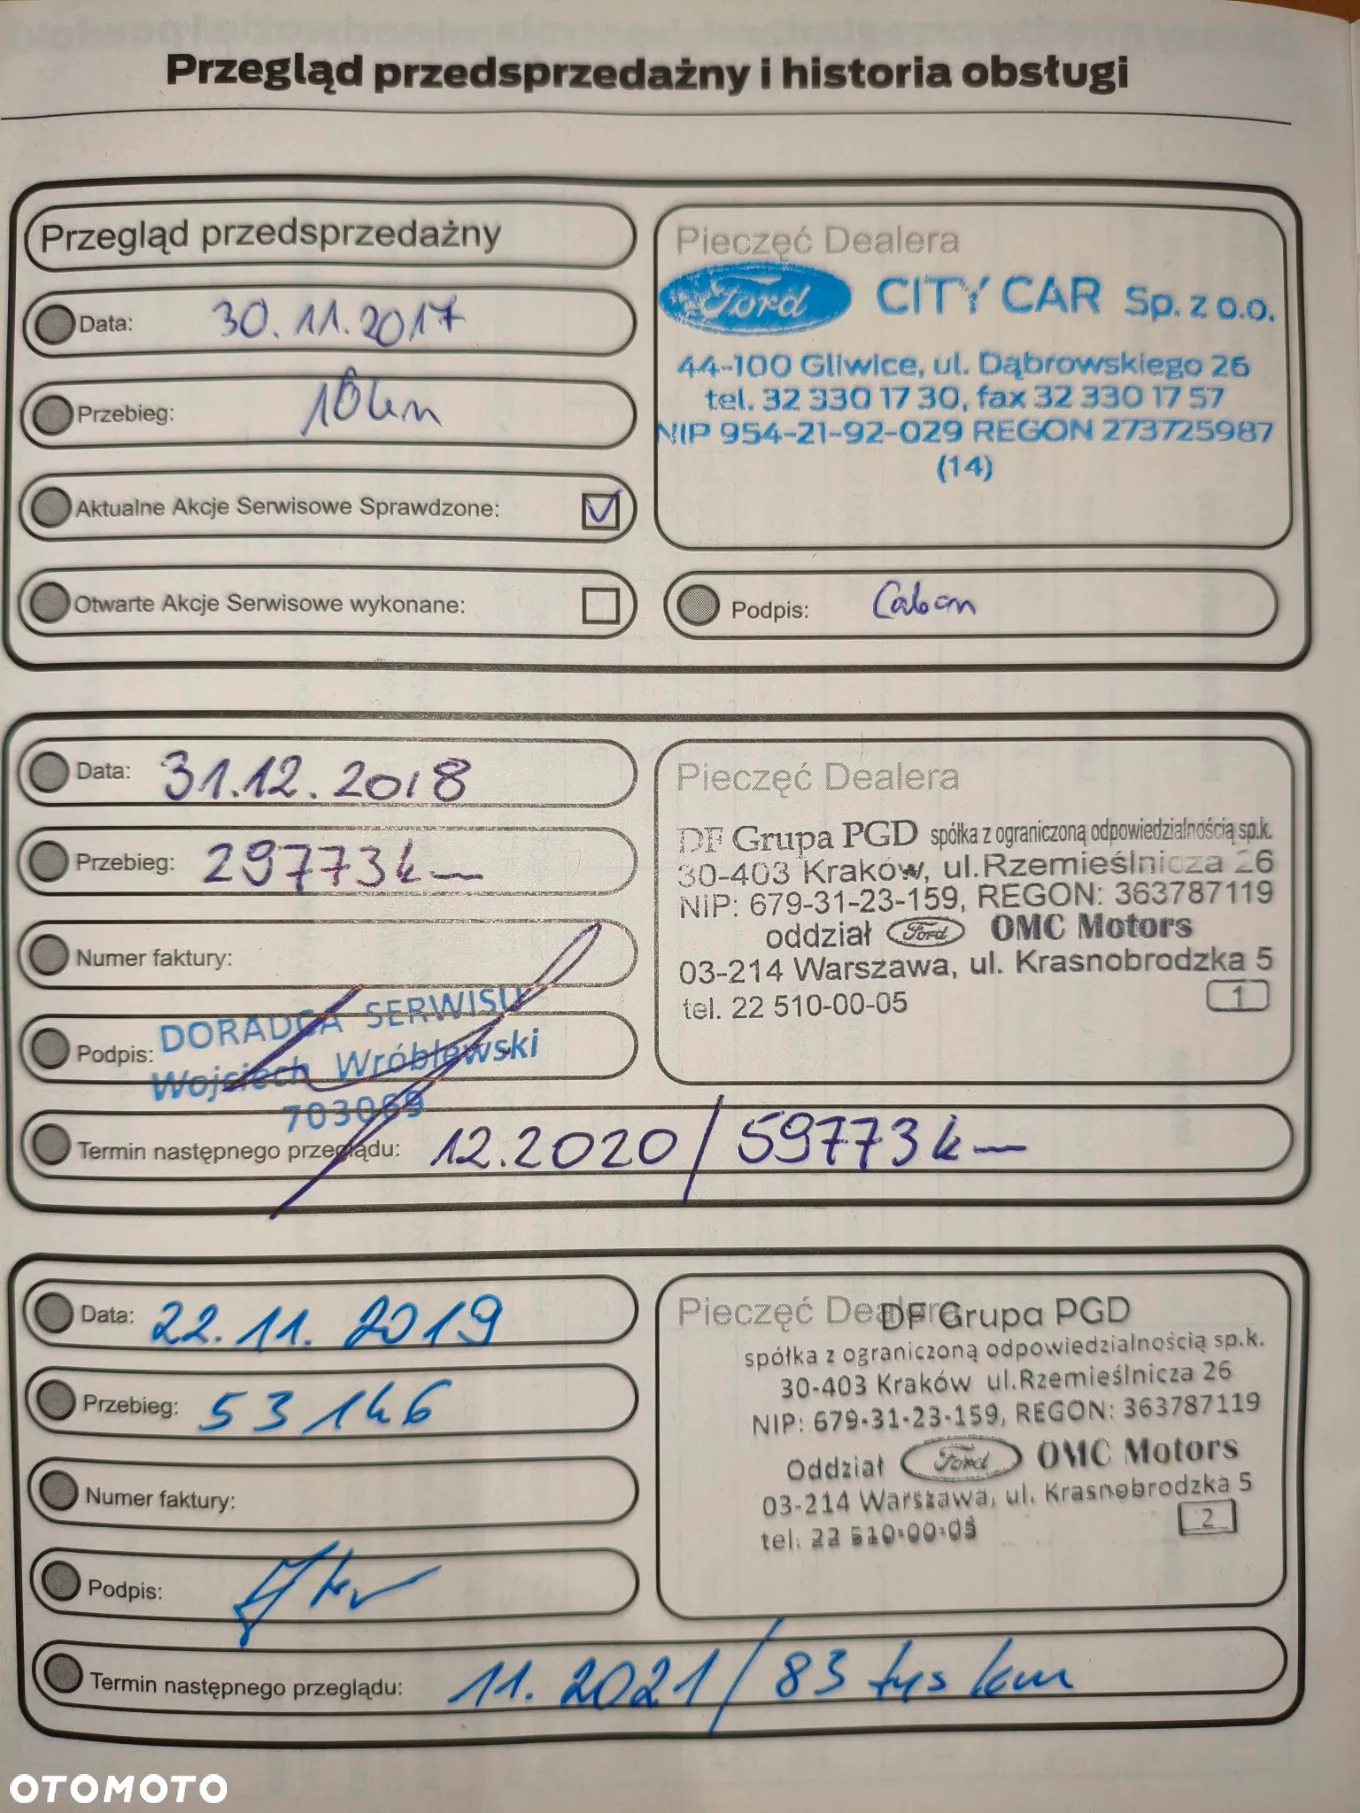 Przegląd przedsprzedażny i historia obsługi
Przegląd przedsprzedażny
Data: 30.11.2017
Przebieg: 10km
Aktualne Akcje Serwisowe Sprawdzone:
Otwarte Akcje Serwisowe wykonane:
Pieczęć Dealera
Ford CITY CAR Sp. z o.o.
44-100 Gliwice, ul. Dąbrowskiego 26
tel. 32 330 17 30, fax 32 330 17 57
NIP 954-21-92-029 REGON 273725987
(14)
Podpis:
Data: 31.12.2018
Przebieg: 29773km
Numer faktury:
Podpis: DORADCA SERWISU
Wojciech Wróblewski
703069
Pieczęć Dealera
DF Grupa PGD spółka z ograniczoną odpowiedzialnością sp.k.
30-403 Kraków, ul.Rzemieślnicza 26
NIP: 679-31-23-159, REGON: 363787119
oddział Ford OMC Motors
03-214 Warszawa, ul. Krasnobrodzka 5
tel. 22 510-00-05
1
Termin następnego przeglądu: 12.2020 / 59773km
Data: 22.11.2019
Przebieg: 53146
Numer faktury:
Podpis:
Pieczęć Dealera
DF Grupa PGD
spółka z ograniczoną odpowiedzialnością sp.k.
30-403 Kraków ul.Rzemieślnicza 26
NIP: 679-31-23-159, REGON: 363787119
Oddział Ford OMC Motors
03-214 Warszawa, ul. Krasnobrodzka 5
tel. 22 510-00-05
2
Termin następnego przeglądu: 11.2021 / 83 tys km
OTOMOTO